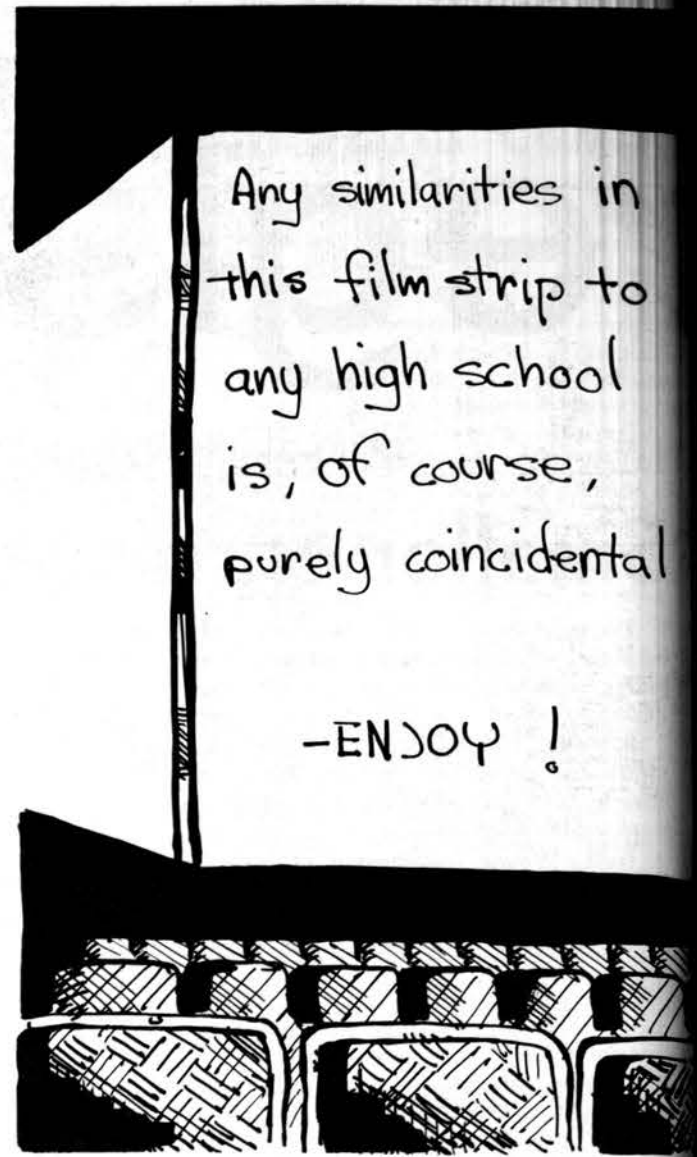 Any similarities in
this film strip to
any high school
is, of course,
purely coincidental
-ENJOY !